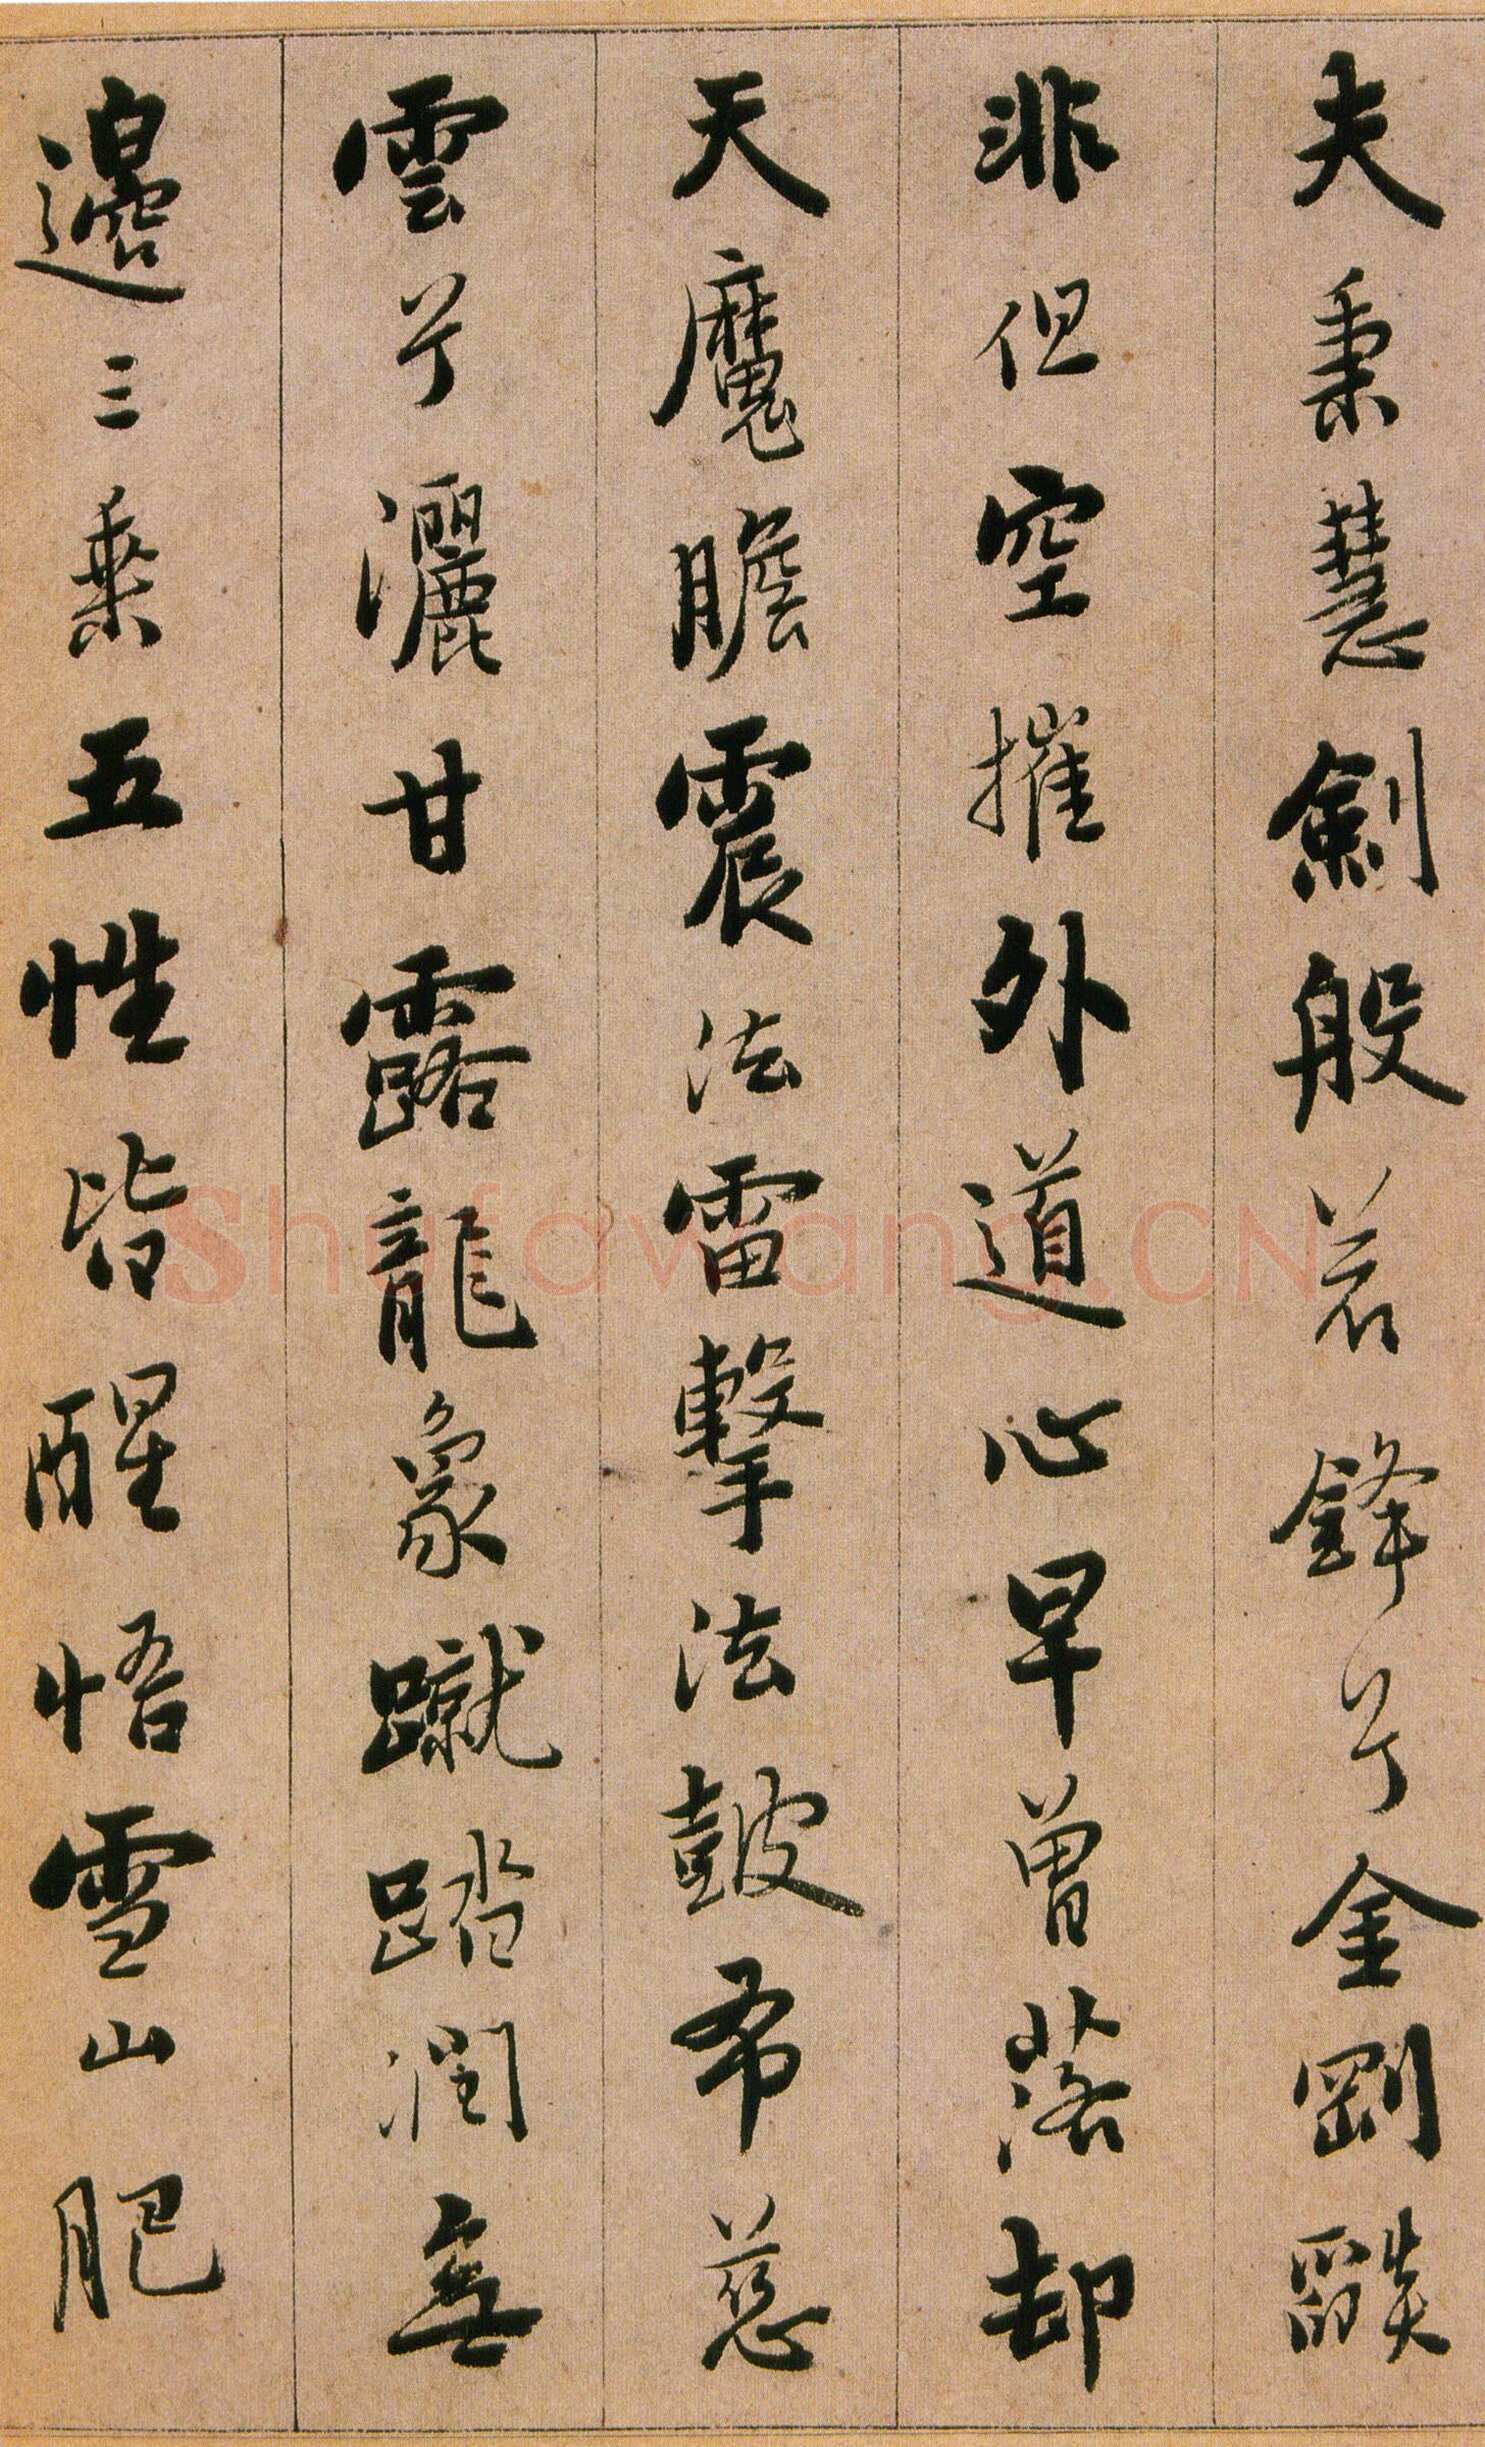 夫秉慧劍般若鋒兮金剛燄
非但空摧外道心早曾落却
天魔膽震法雷擊法鼓布慈
雲兮灑甘露龍象蹴踏潤無
邊三乗五性皆醒悟雪山肥
Shufawang.CN